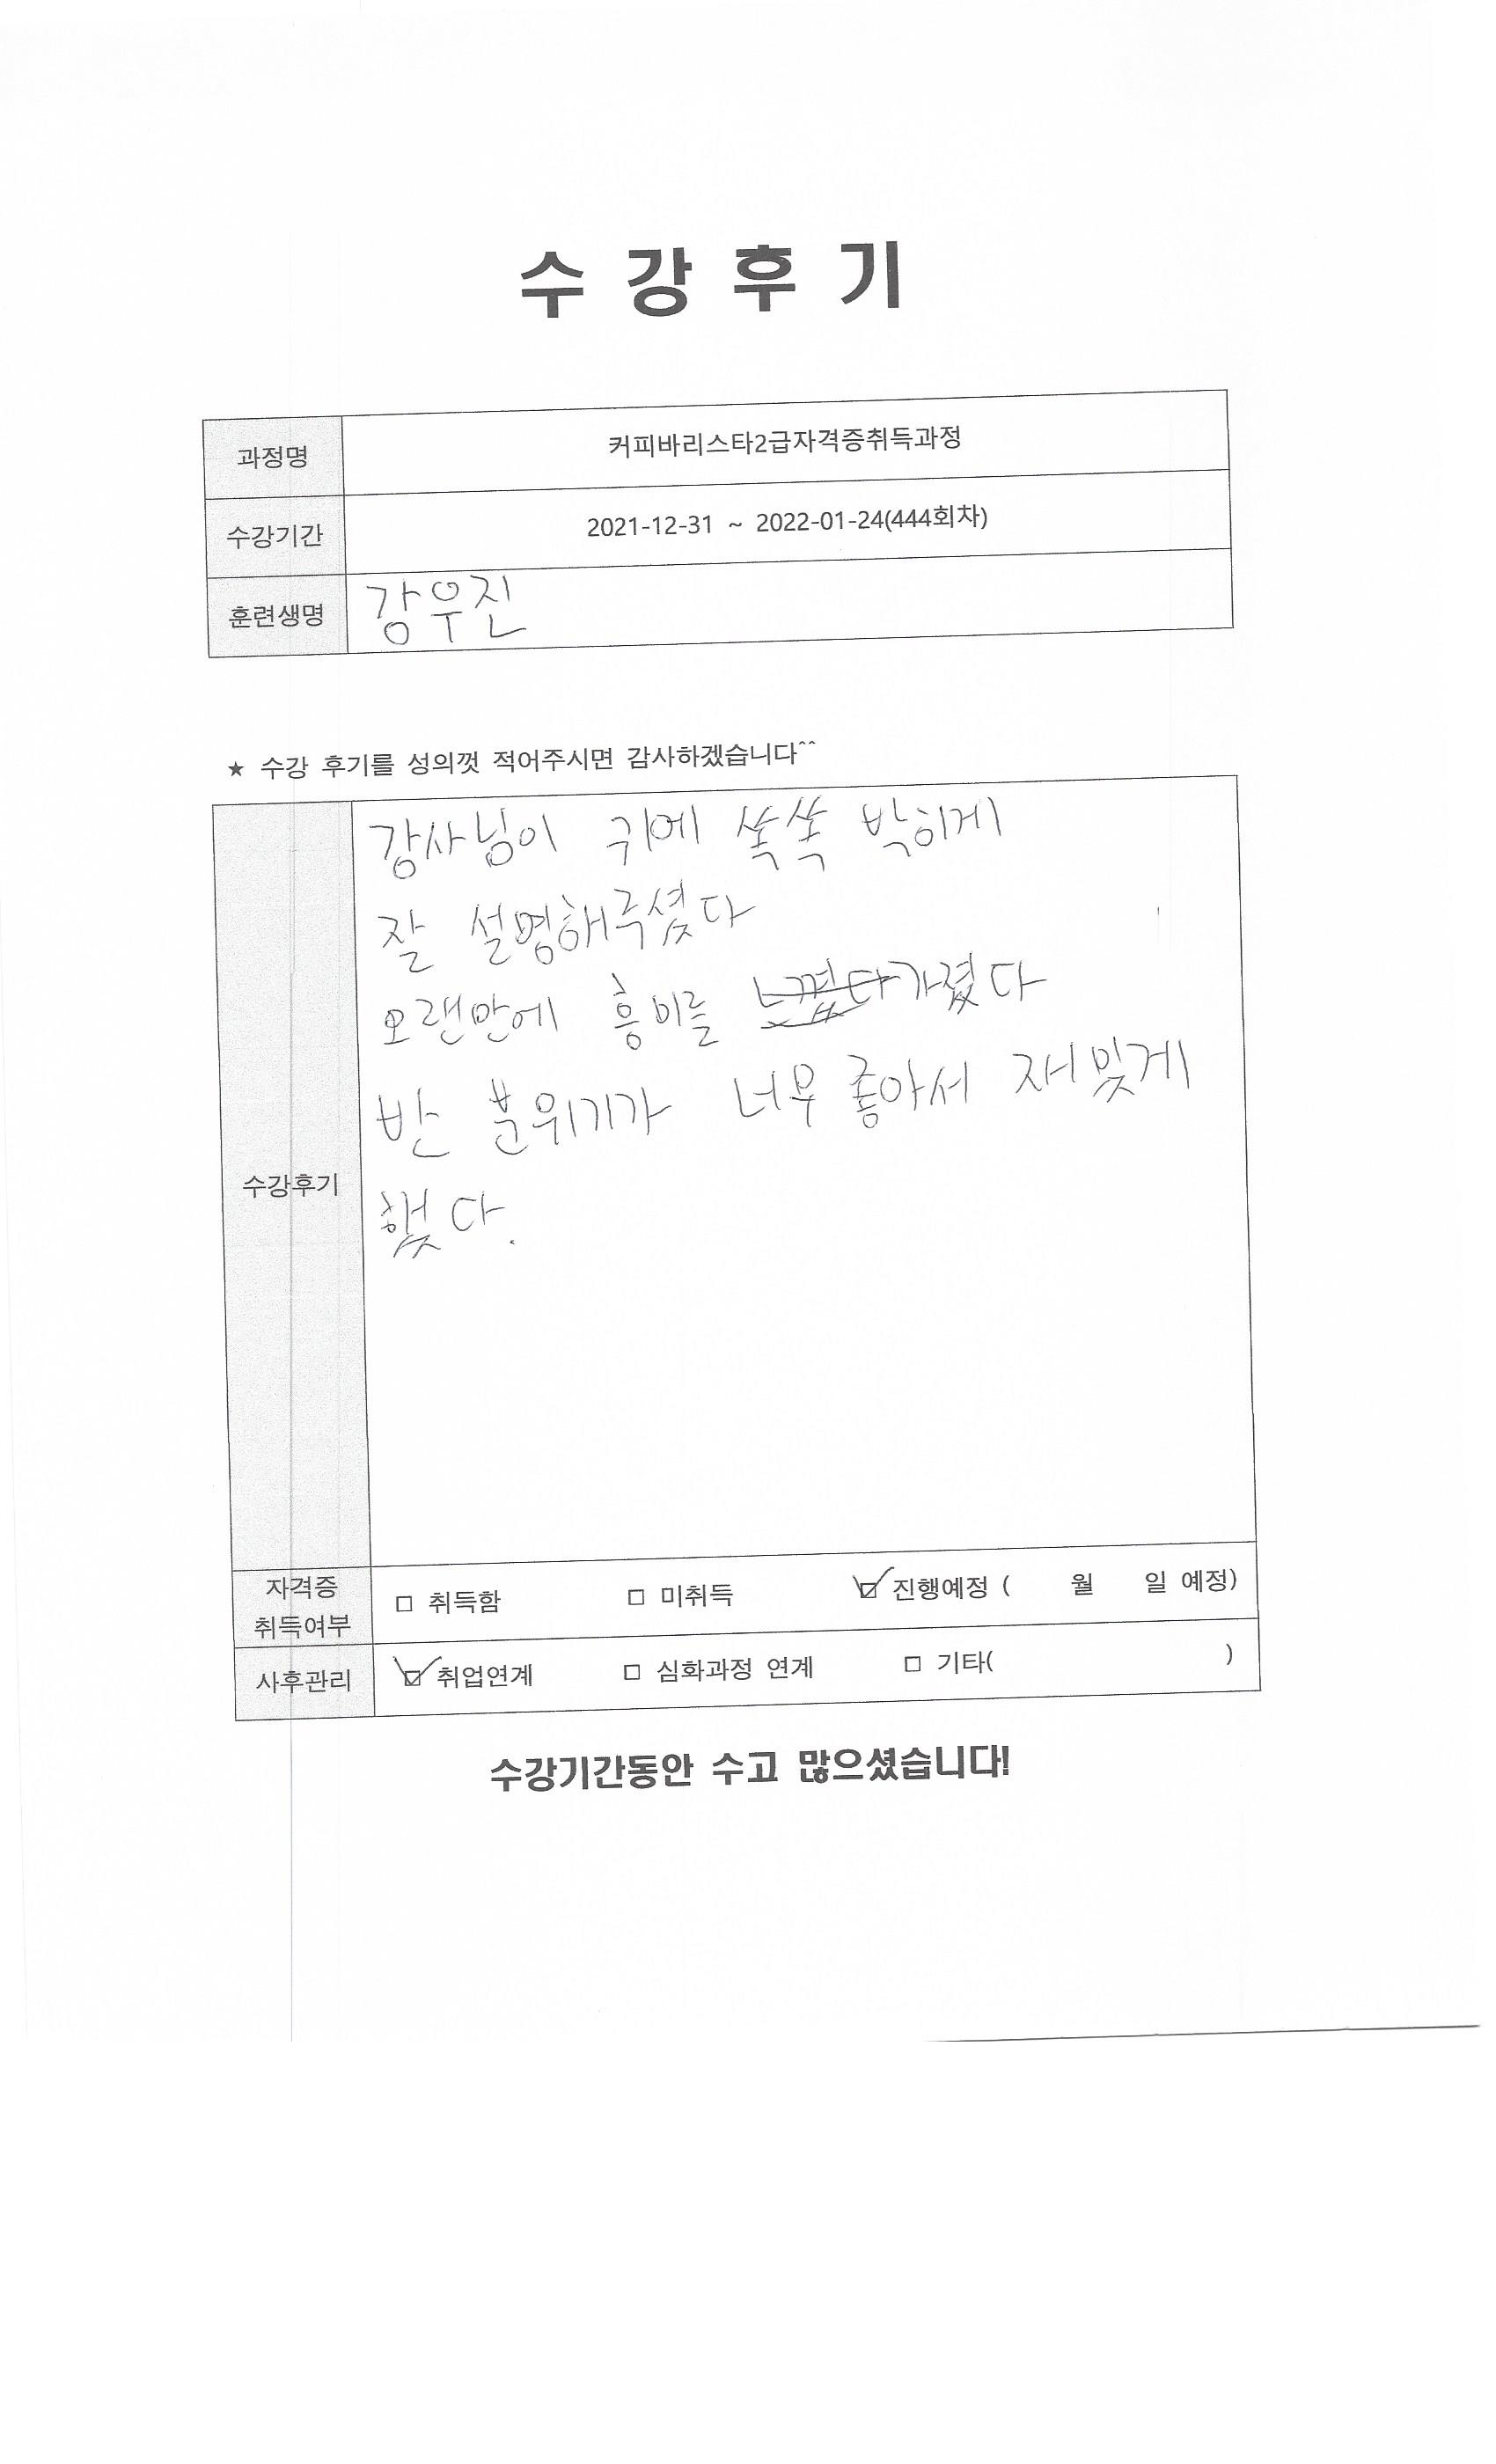 수 강 후 기
과정명 커피바리스타2급자격증취득과정
수강기간 2021-12-31 ~ 2022-01-24(444회차)
훈련생명 강우진
★ 수강 후기를 성의껏 적어주시면 감사하겠습니다^^
수강후기
강사님이 귀에 쏙쏙 박히게
잘 설명해주셨다
오랜만에 흥미를 느꼈다가졌다
반 분위기가 너무 좋아서 재밌게
했다.
자격증
취득여부
□ 취득함 □ 미취득 ☑ 진행예정 ( 월 일 예정)
사후관리 ☑ 취업연계 □ 심화과정 연계 □ 기타( )
수강기간동안 수고 많으셨습니다!